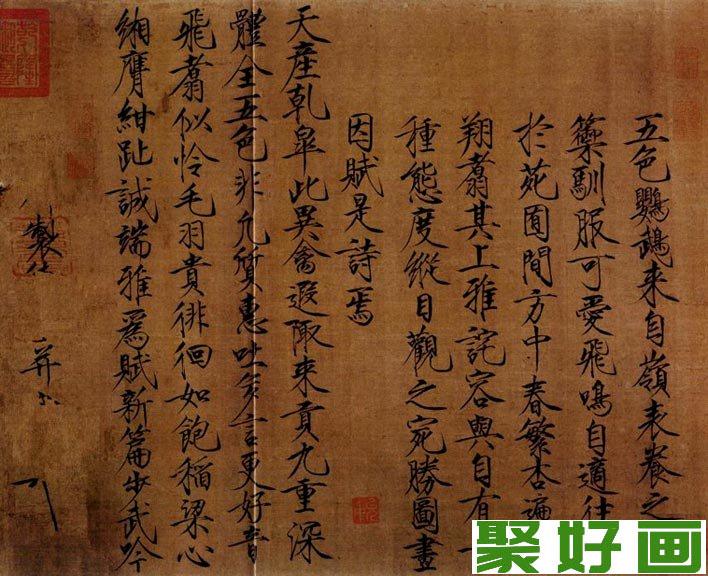 五色鸚鵡來自嶺表養之
籞馴服可愛飛鳴自適往
於苑囿間方中春繁杏遍
翔翥其上雅詫容與自有一
種態度縱目觀之宛勝圖畫
因賦是詩焉
天產乾皋此異禽遐陬來貢九重深
體全五色非凡質惠吐多言更好音
飛翥似憐毛羽貴徘徊如飽稻粱心
緗膺紺趾誠端雅為賦新篇步武吟
製 并
聚好画